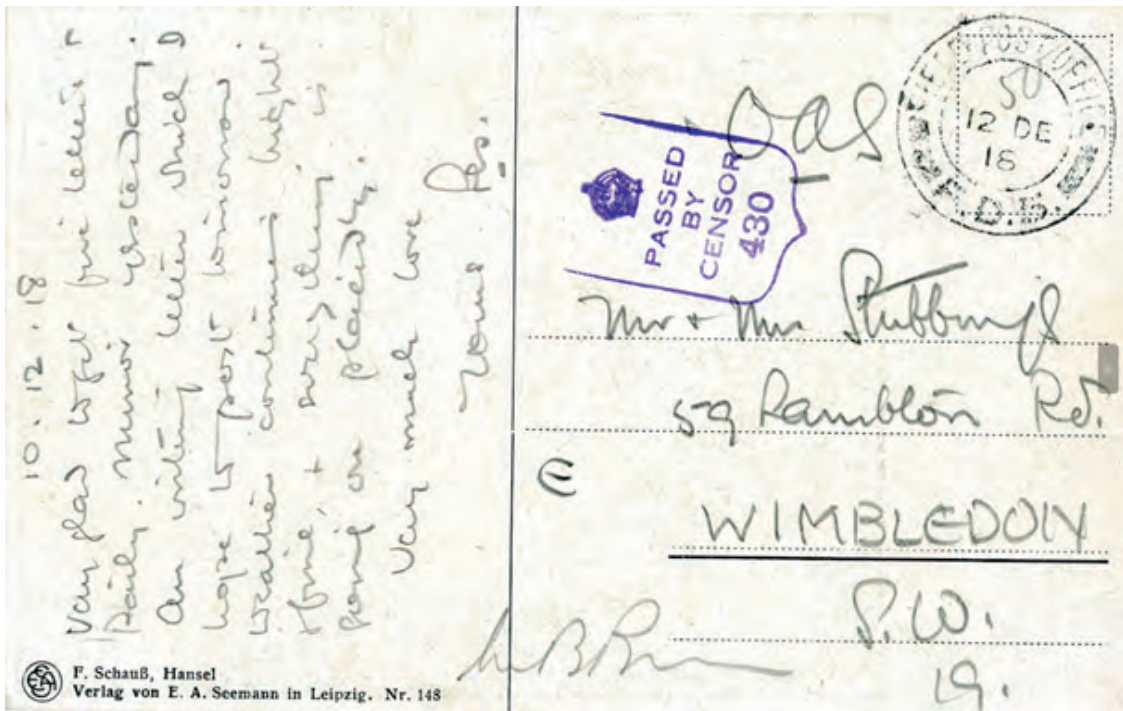 10.12.18
Very glad to get five letters &
Daily Mirror yesterday.
Am writing letter which I
hope to post tomorrow.
Weather continues bright
& fine, & everything is
going on placidly.
Very much love
Yours
F. Schauß, Hansel
Verlag von E. A. Seemann in Leipzig. Nr. 148
OAS
PASSED
BY
CENSOR
430
FIELD POST OFFICE
50
12 DE
18
Mr & Mrs Stubbings
59 Ramblón Rd.
E
WIMBLEDON
S.W.
19.